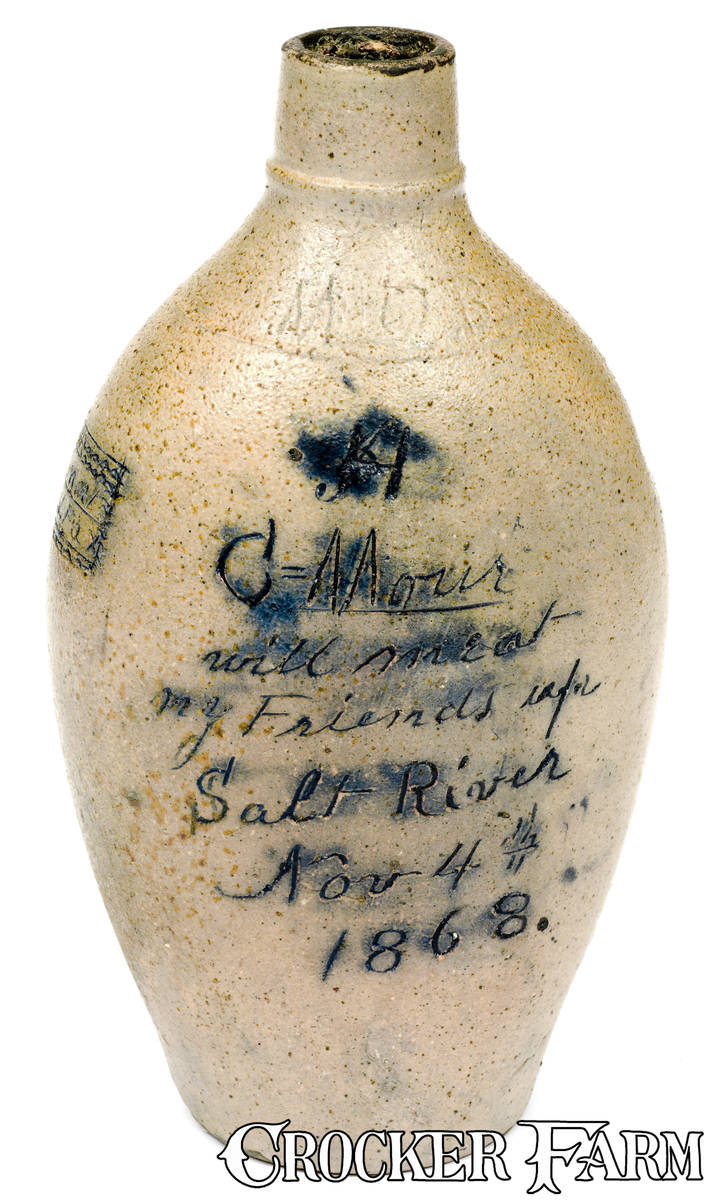 H
C=Mour
will meat
my Friends up
Salt River
Nov 4th
1868.
CROCKER FARM